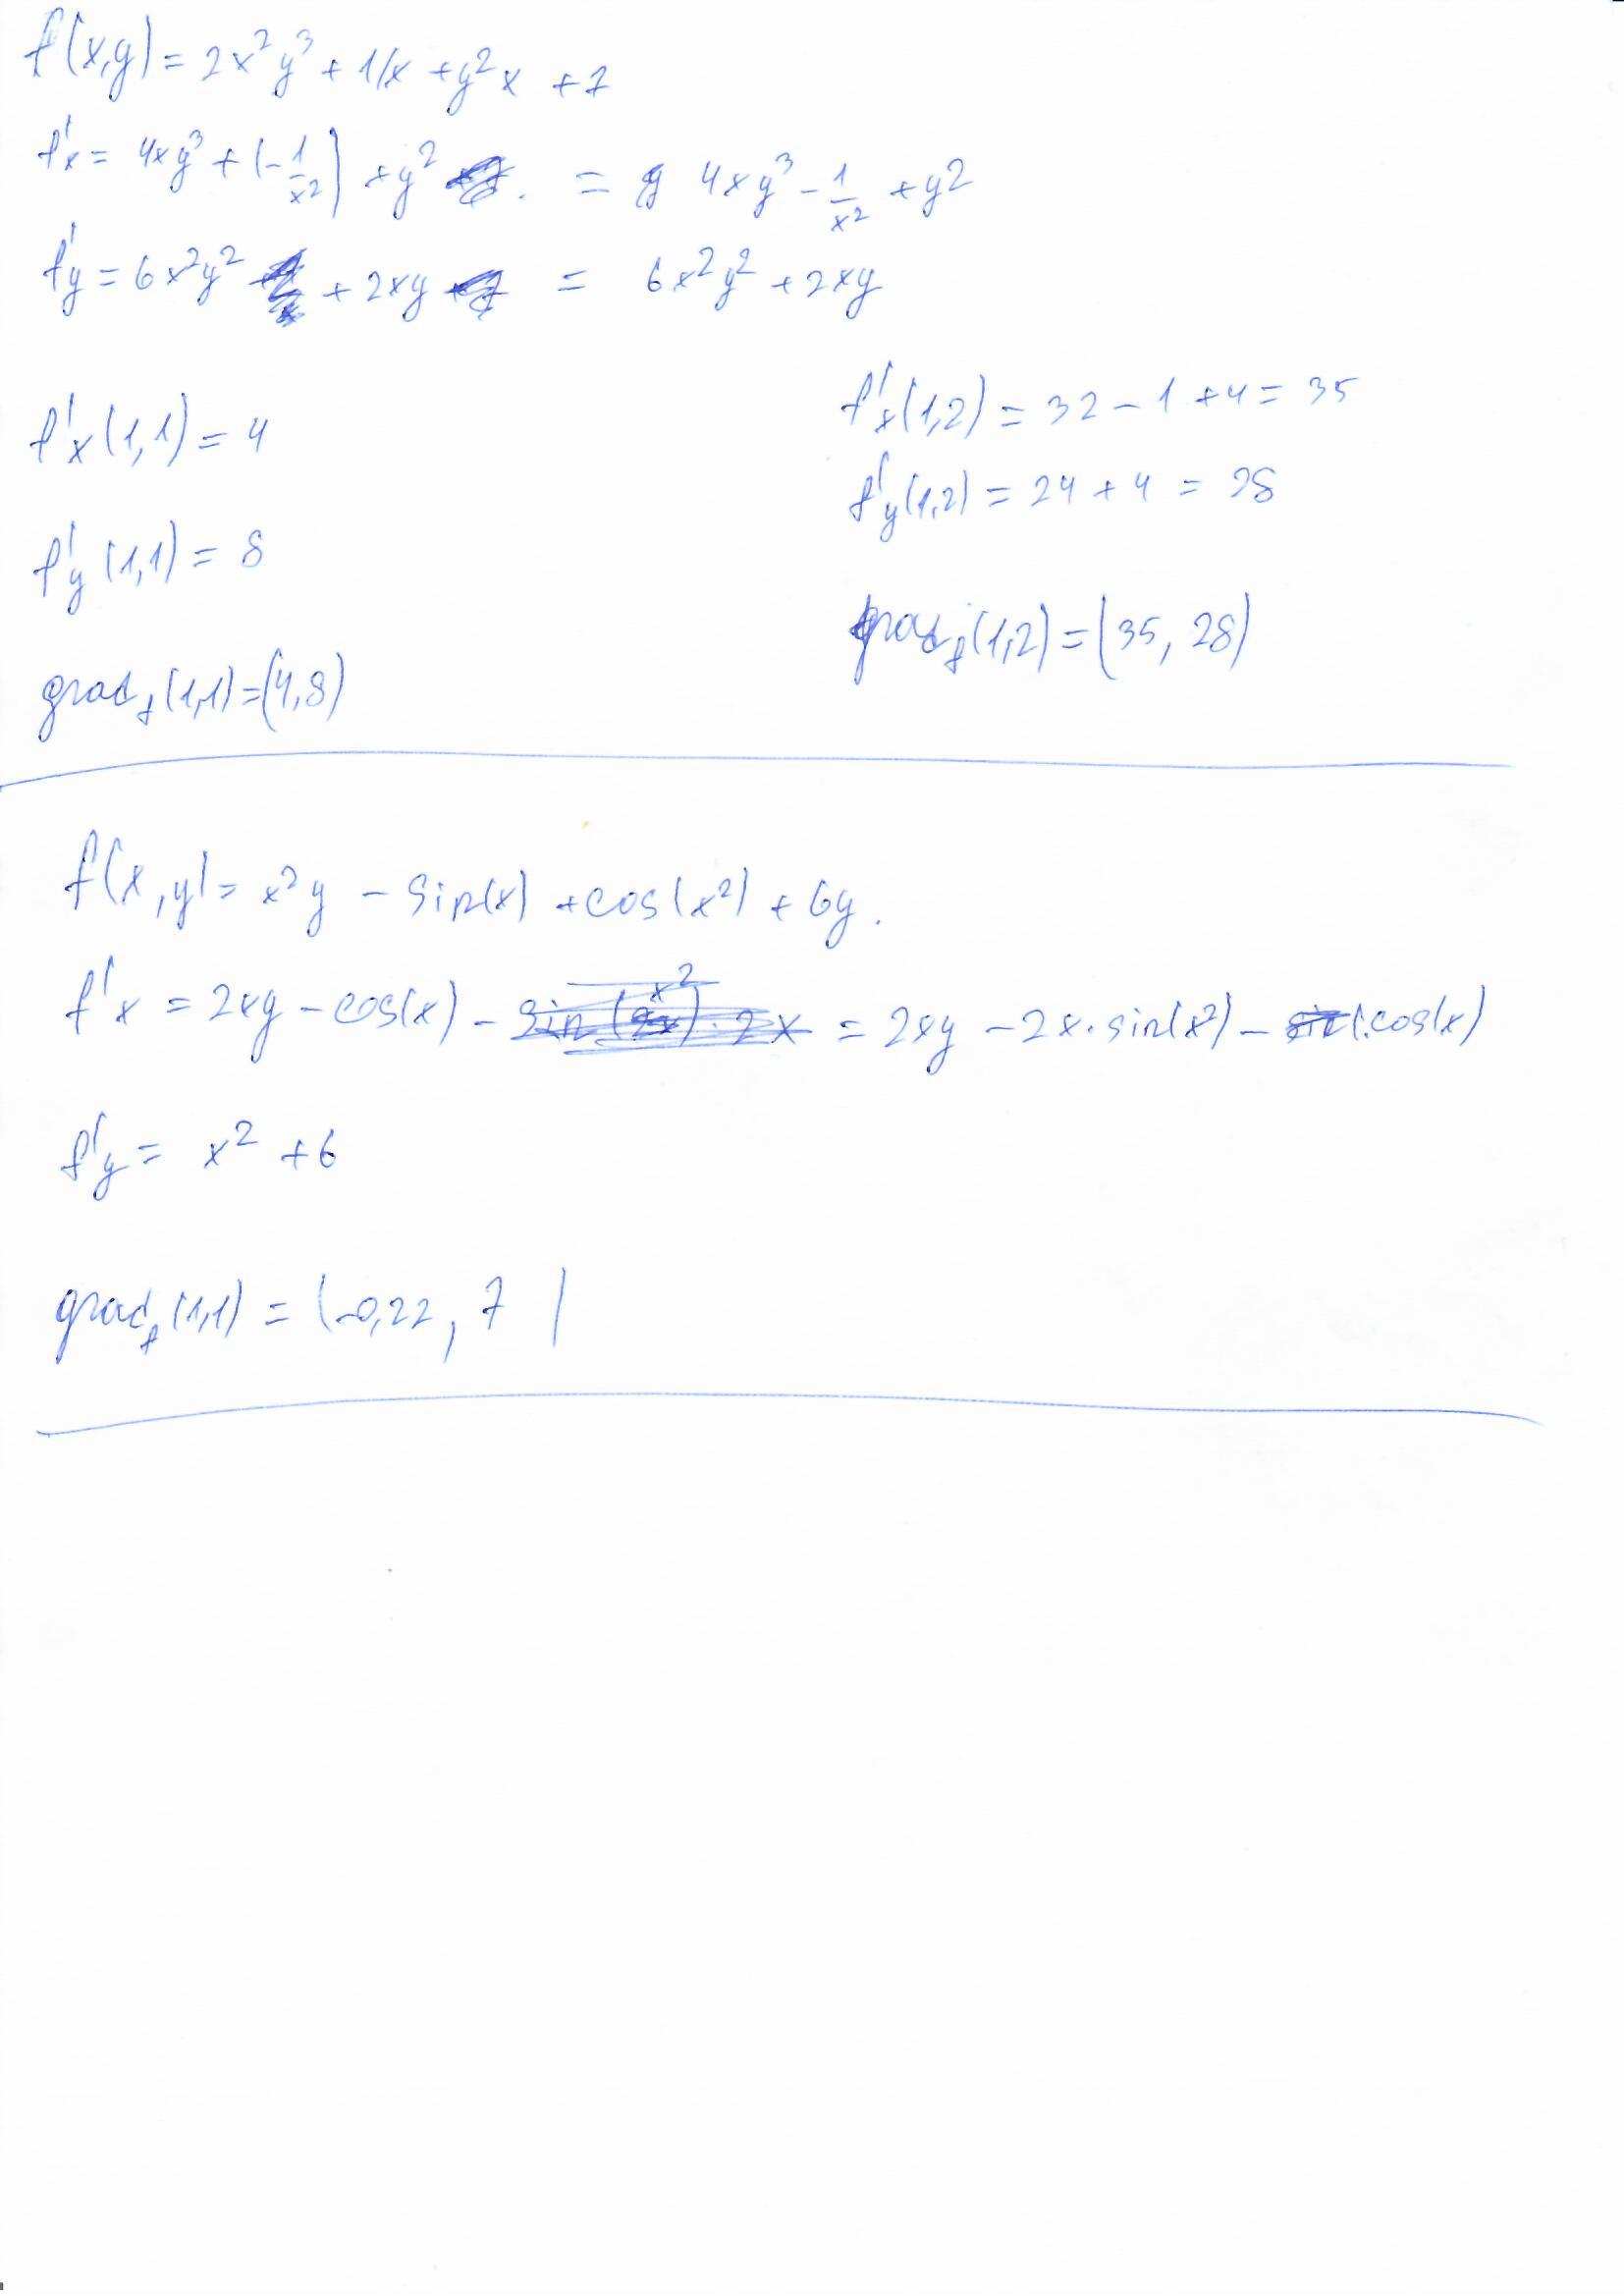 f(x,y) = 2x²y³ + 1/x + y²x + 7
f'x = 4xy³ + (-1/x²) + y² = 4xy³ - 1/x² + y²
f'y = 6x²y² + 2xy = 6x²y² + 2xy
f'x(1,1) = 4
f'y(1,1) = 8
grad f(1,1) = (4,8)
f'x(1,2) = 32 - 1 + 4 = 35
f'y(1,2) = 24 + 4 = 28
grad f(1,2) = (35, 28)
f(x,y) = x²y - sin(x) + cos(x²) + 6y.
f'x = 2xy - cos(x) - sin(x²)·2x = 2xy - 2x·sin(x²) - cos(x)
f'y = x² + 6
grad f(1,1) = (-0,22, 7)